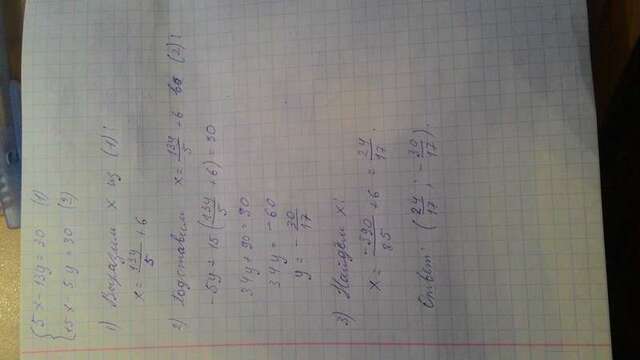 {5x-13y=30 (1)
15x-5y=30 (2)
1) Выразим x из (1):
x=13y/5+6
2) Подставим x=13y/5+6 во (2):
-5y+15(13y/5+6)=30
34y+90=30
34y=-60
y=-30/17
3) Найдём x:
x=-390/85+6=24/17.
Ответ: (24/17; -30/17).